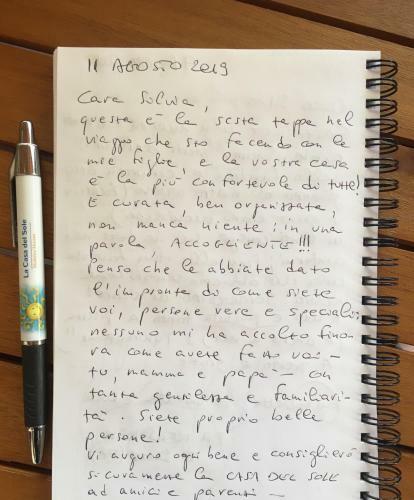 11 AGOSTO 2019
Cara Silvia,
questa è la sesta tappa nel
viaggio che sto facendo con le
mie figlie, e la vostra casa
è la più confortevole di tutte!
È curata, ben organizzata,
non manca niente: in una
parola, ACCOGLIENTE!!!
Penso che le abbiate dato
l'impronta di come siete
voi, persone vere e speciali:
nessuno mi ha accolto fino
ra come avete fatto voi -
tu, mamma e papà - con
tanta gentilezza e familiari-
tà. Siete proprio belle
persone!
Vi auguro ogni bene e consiglierò
sicuramente la CASA DEL SOLE
ad amici e parenti -
La Casa del Sole